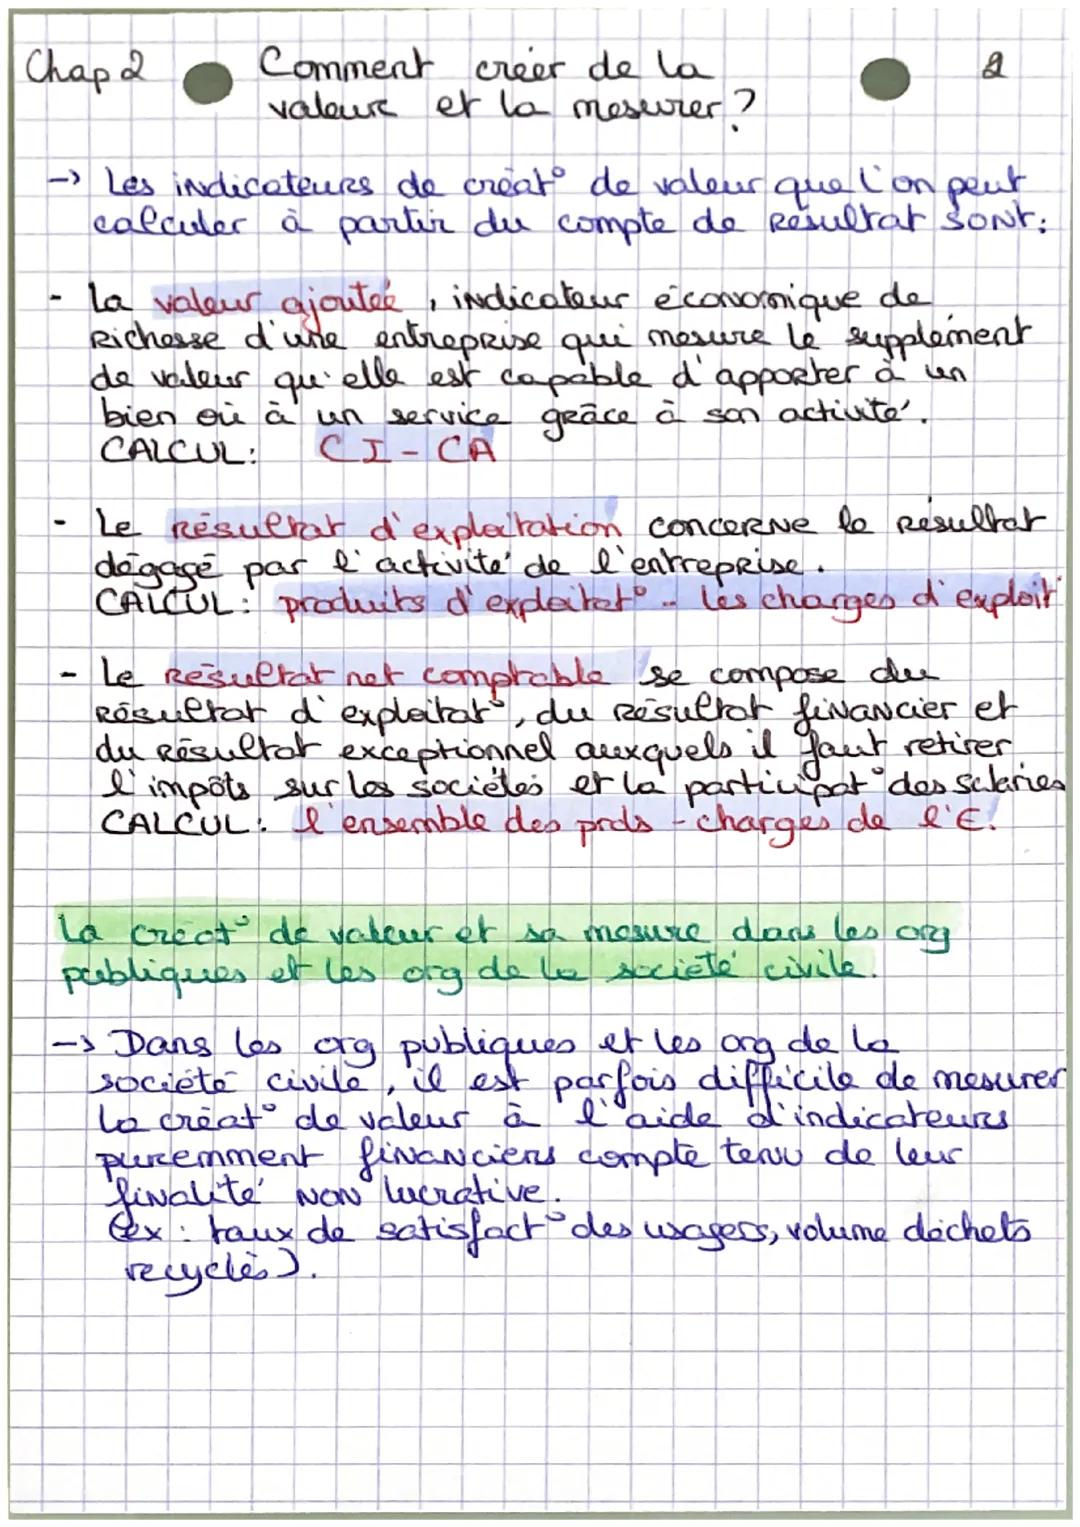 Chap 2 Comment créer de la 2
valeur et la mesurer ?
-> Les indicateurs de créat° de valeur que l'on peut
calculer à partir du compte de résultat sont :
- La valeur ajoutée, indicateur économique de
Richesse d'une entreprise qui mesure le supplément
de valeur qu'elle est capable d'apporter à un
bien ou à un service grâce à son activité.
CALCUL : CI - CA
- Le résultat d'exploitation concerne le résultat
dégagé par l'activité de l'entreprise.
CALCUL : produits d'exploitat° - les charges d'exploit°
- Le résultat net comptable se compose du
résultat d'exploitat°, du résultat financier et
du résultat exceptionnel auxquels il faut retirer
l'impôts sur les sociétés et la participat° des salariés
CALCUL : l'ensemble des prds - charges de l'E.
La créat° de valeur et sa mesure dans les org
publiques et les org de la société civile.
-> Dans les org publiques et les org de la
société civile, il est parfois difficile de mesurer
la créat° de valeur à l'aide d'indicateurs
puremment financiers compte tenu de leur
finalité non lucrative.
(ex : taux de satisfact° des usagers, volume déchets
recyclés).